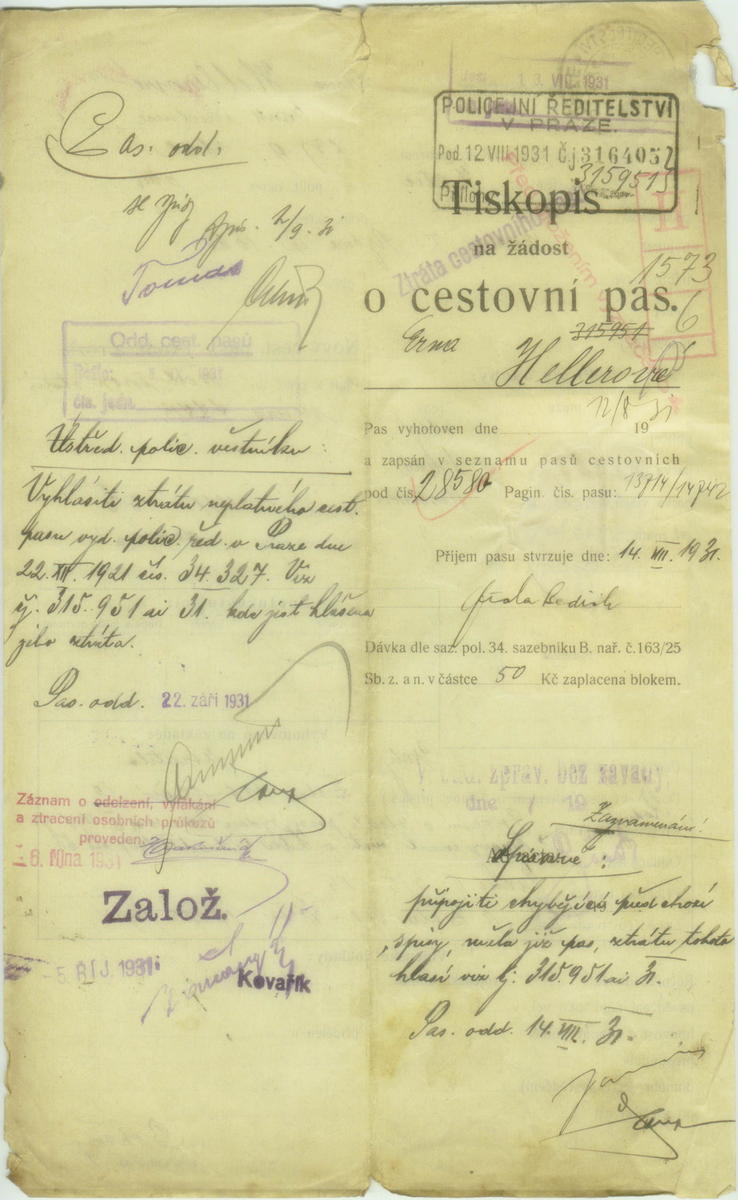 Pas. odd.
2/9. 31
Odd. cest. pasů
Došlo: IX. 1931
čís. jedn.
Ústřed. polic. věstníku:
Vyhlásiti ztrátu neplatného cest.
pasu vyd. polic. řed. v Praze dne
22. XII. 1921 čís. 34.327. Viz
čj. 315.951 ai 31. kde jest hlášena
jeho ztráta.
Pas. odd. 22. září 1931
Záznam o odcizení, vylákání
a ztracení osobních průkazů
proveden.
-8. října 1931
Založ.
5. ŘÍJ. 1931
Kovařík
13. VIII. 1931
POLICEJNÍ ŘEDITELSTVÍ
V PRAZE.
Pod. 12. VIII 1931 Čj 316405
315951
Příloh
Tiskopis
na žádost
Ztráta cestovního
II
o cestovní pas.
1573
6
315951
Erna
Hellerová
12/8 31
Pas vyhotoven dne 19
a zapsán v seznamu pasů cestovních
pod čís. 28580 Pagin. čís. pasu: 13714/14742
Příjem pasu stvrzuje dne: 14. VIII. 1931.
Dávka dle saz. pol. 34. sazebníku B. nař. č. 163/25
Sb. z. a n. v částce 50 Kč zaplacena blokem.
V odd. zpráv. bez závady
dne 19
Zaznamenáni!
Spisovně:
připojiti chybějící předchozí
spisy, měla již pas, ztrátu tohoto
hlásí viz čj. 315.951 ai 31.
Pas. odd. 14. VIII. 31.